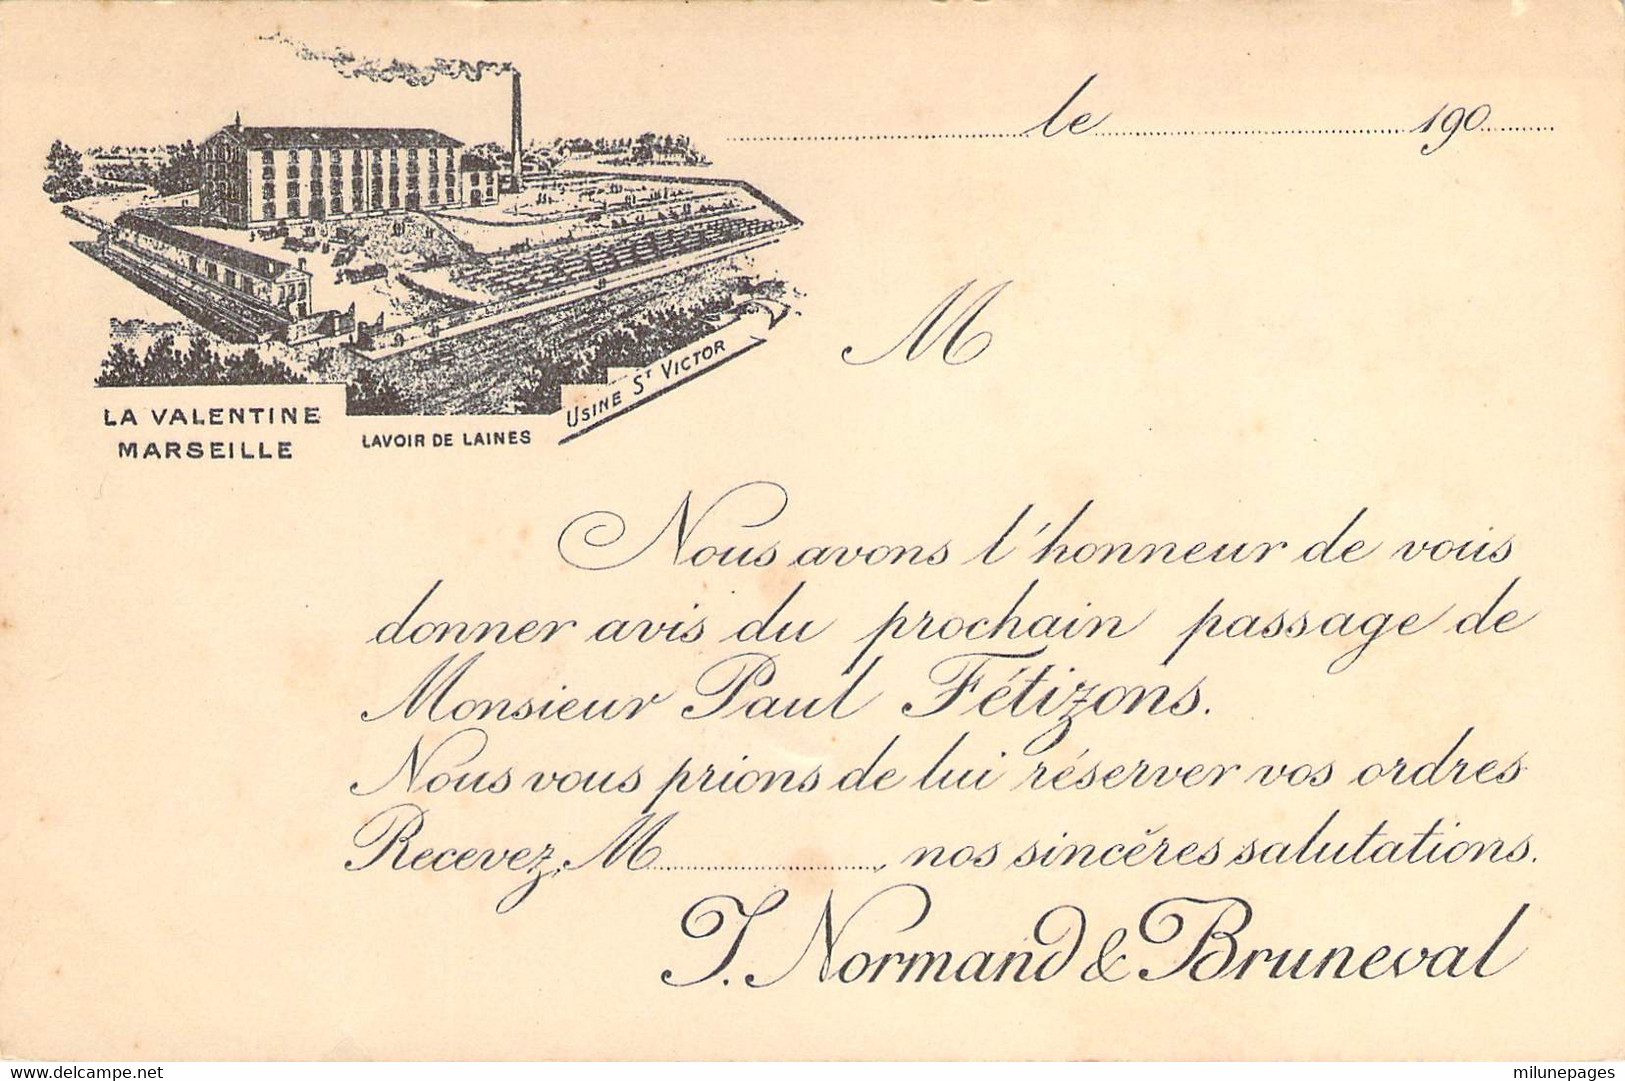 le 190
M
LA VALENTINE
MARSEILLE
LAVOIR DE LAINES
USINE ST VICTOR
Nous avons l'honneur de vous
donner avis du prochain passage de
Monsieur Paul Fétizons.
Nous vous prions de lui réserver vos ordres
Recevez, M , nos sincères salutations.
J. Normand & Bruneval
delcampe.net
milunepages